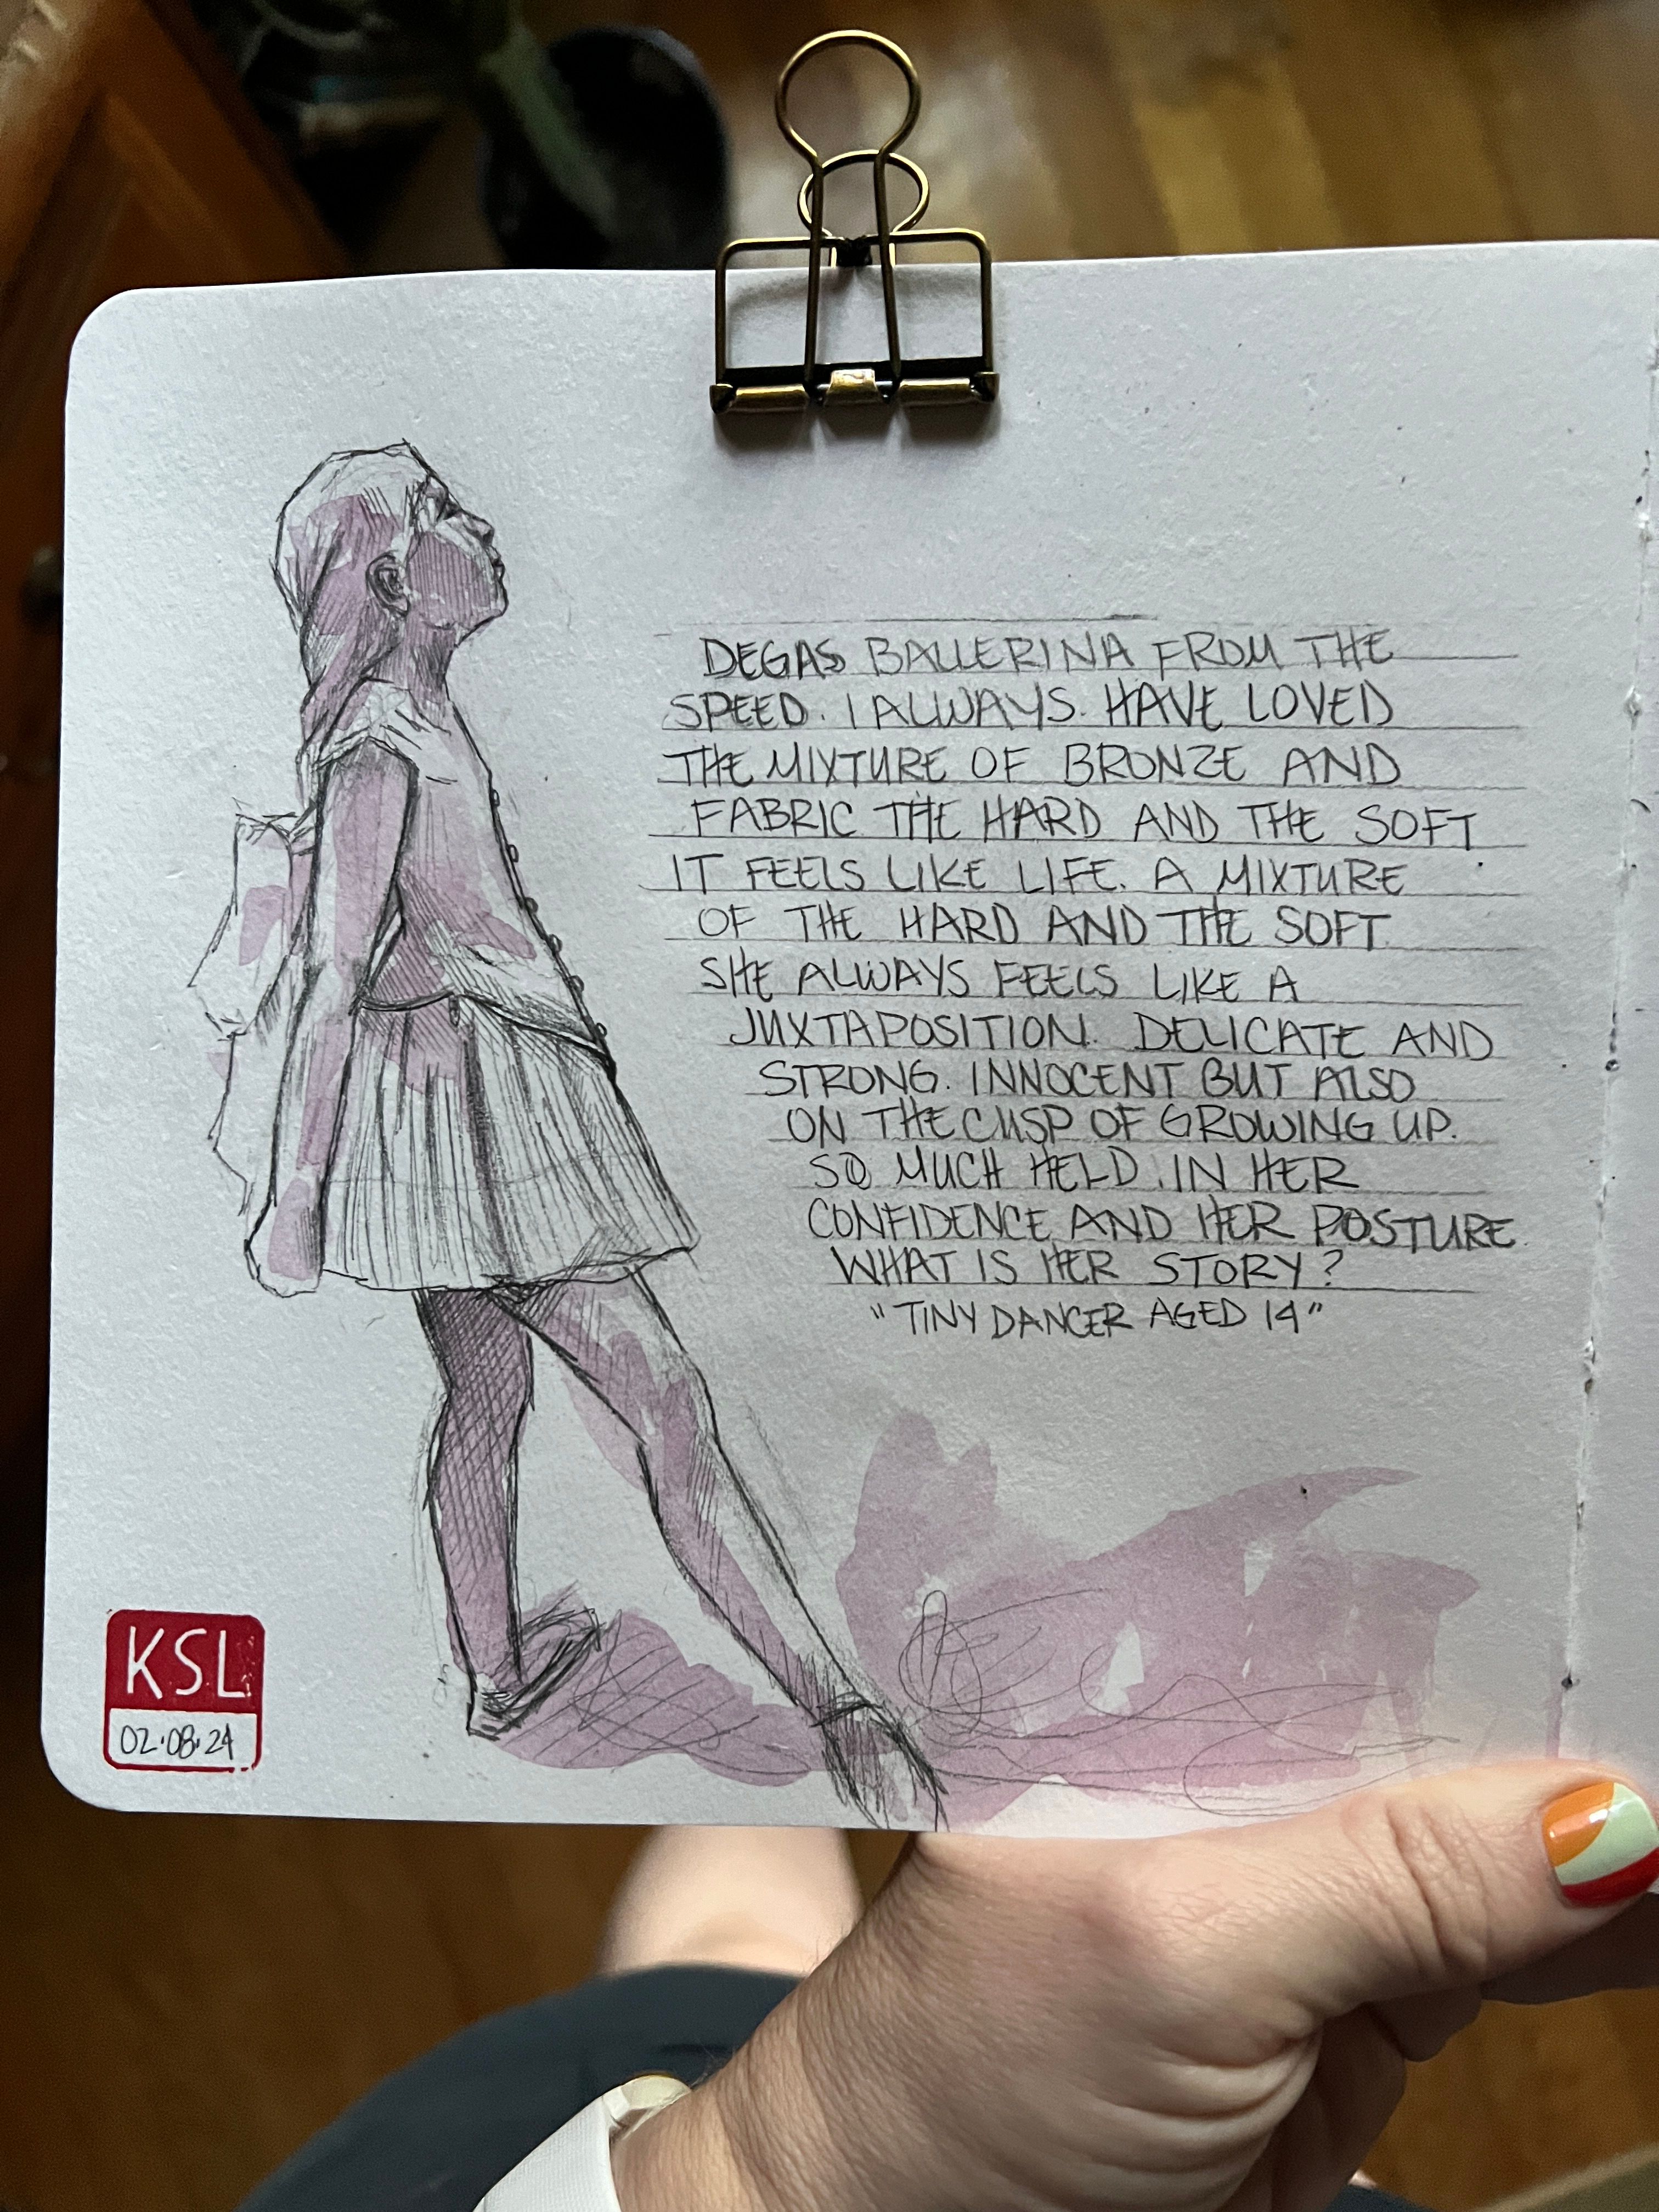 DEGAS BALLERINA FROM THE
SPEED. I ALWAYS. HAVE LOVED
THE MIXTURE OF BRONZE AND
FABRIC THE HARD AND THE SOFT
IT FEELS LIKE LIFE. A MIXTURE
OF THE HARD AND THE SOFT
SHE ALWAYS FEELS LIKE A
JUXTAPOSITION. DELICATE AND
STRONG. INNOCENT BUT ALSO
ON THE CUSP OF GROWING UP.
SO MUCH HELD IN HER
CONFIDENCE AND HER POSTURE.
WHAT IS HER STORY?
"TINY DANCER AGED 14"
KSL
02.08.24